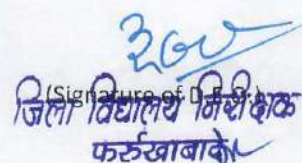 (Signature of D.E.O.)
जिला विद्यालय निरीक्षक
फर्रुखाबाद